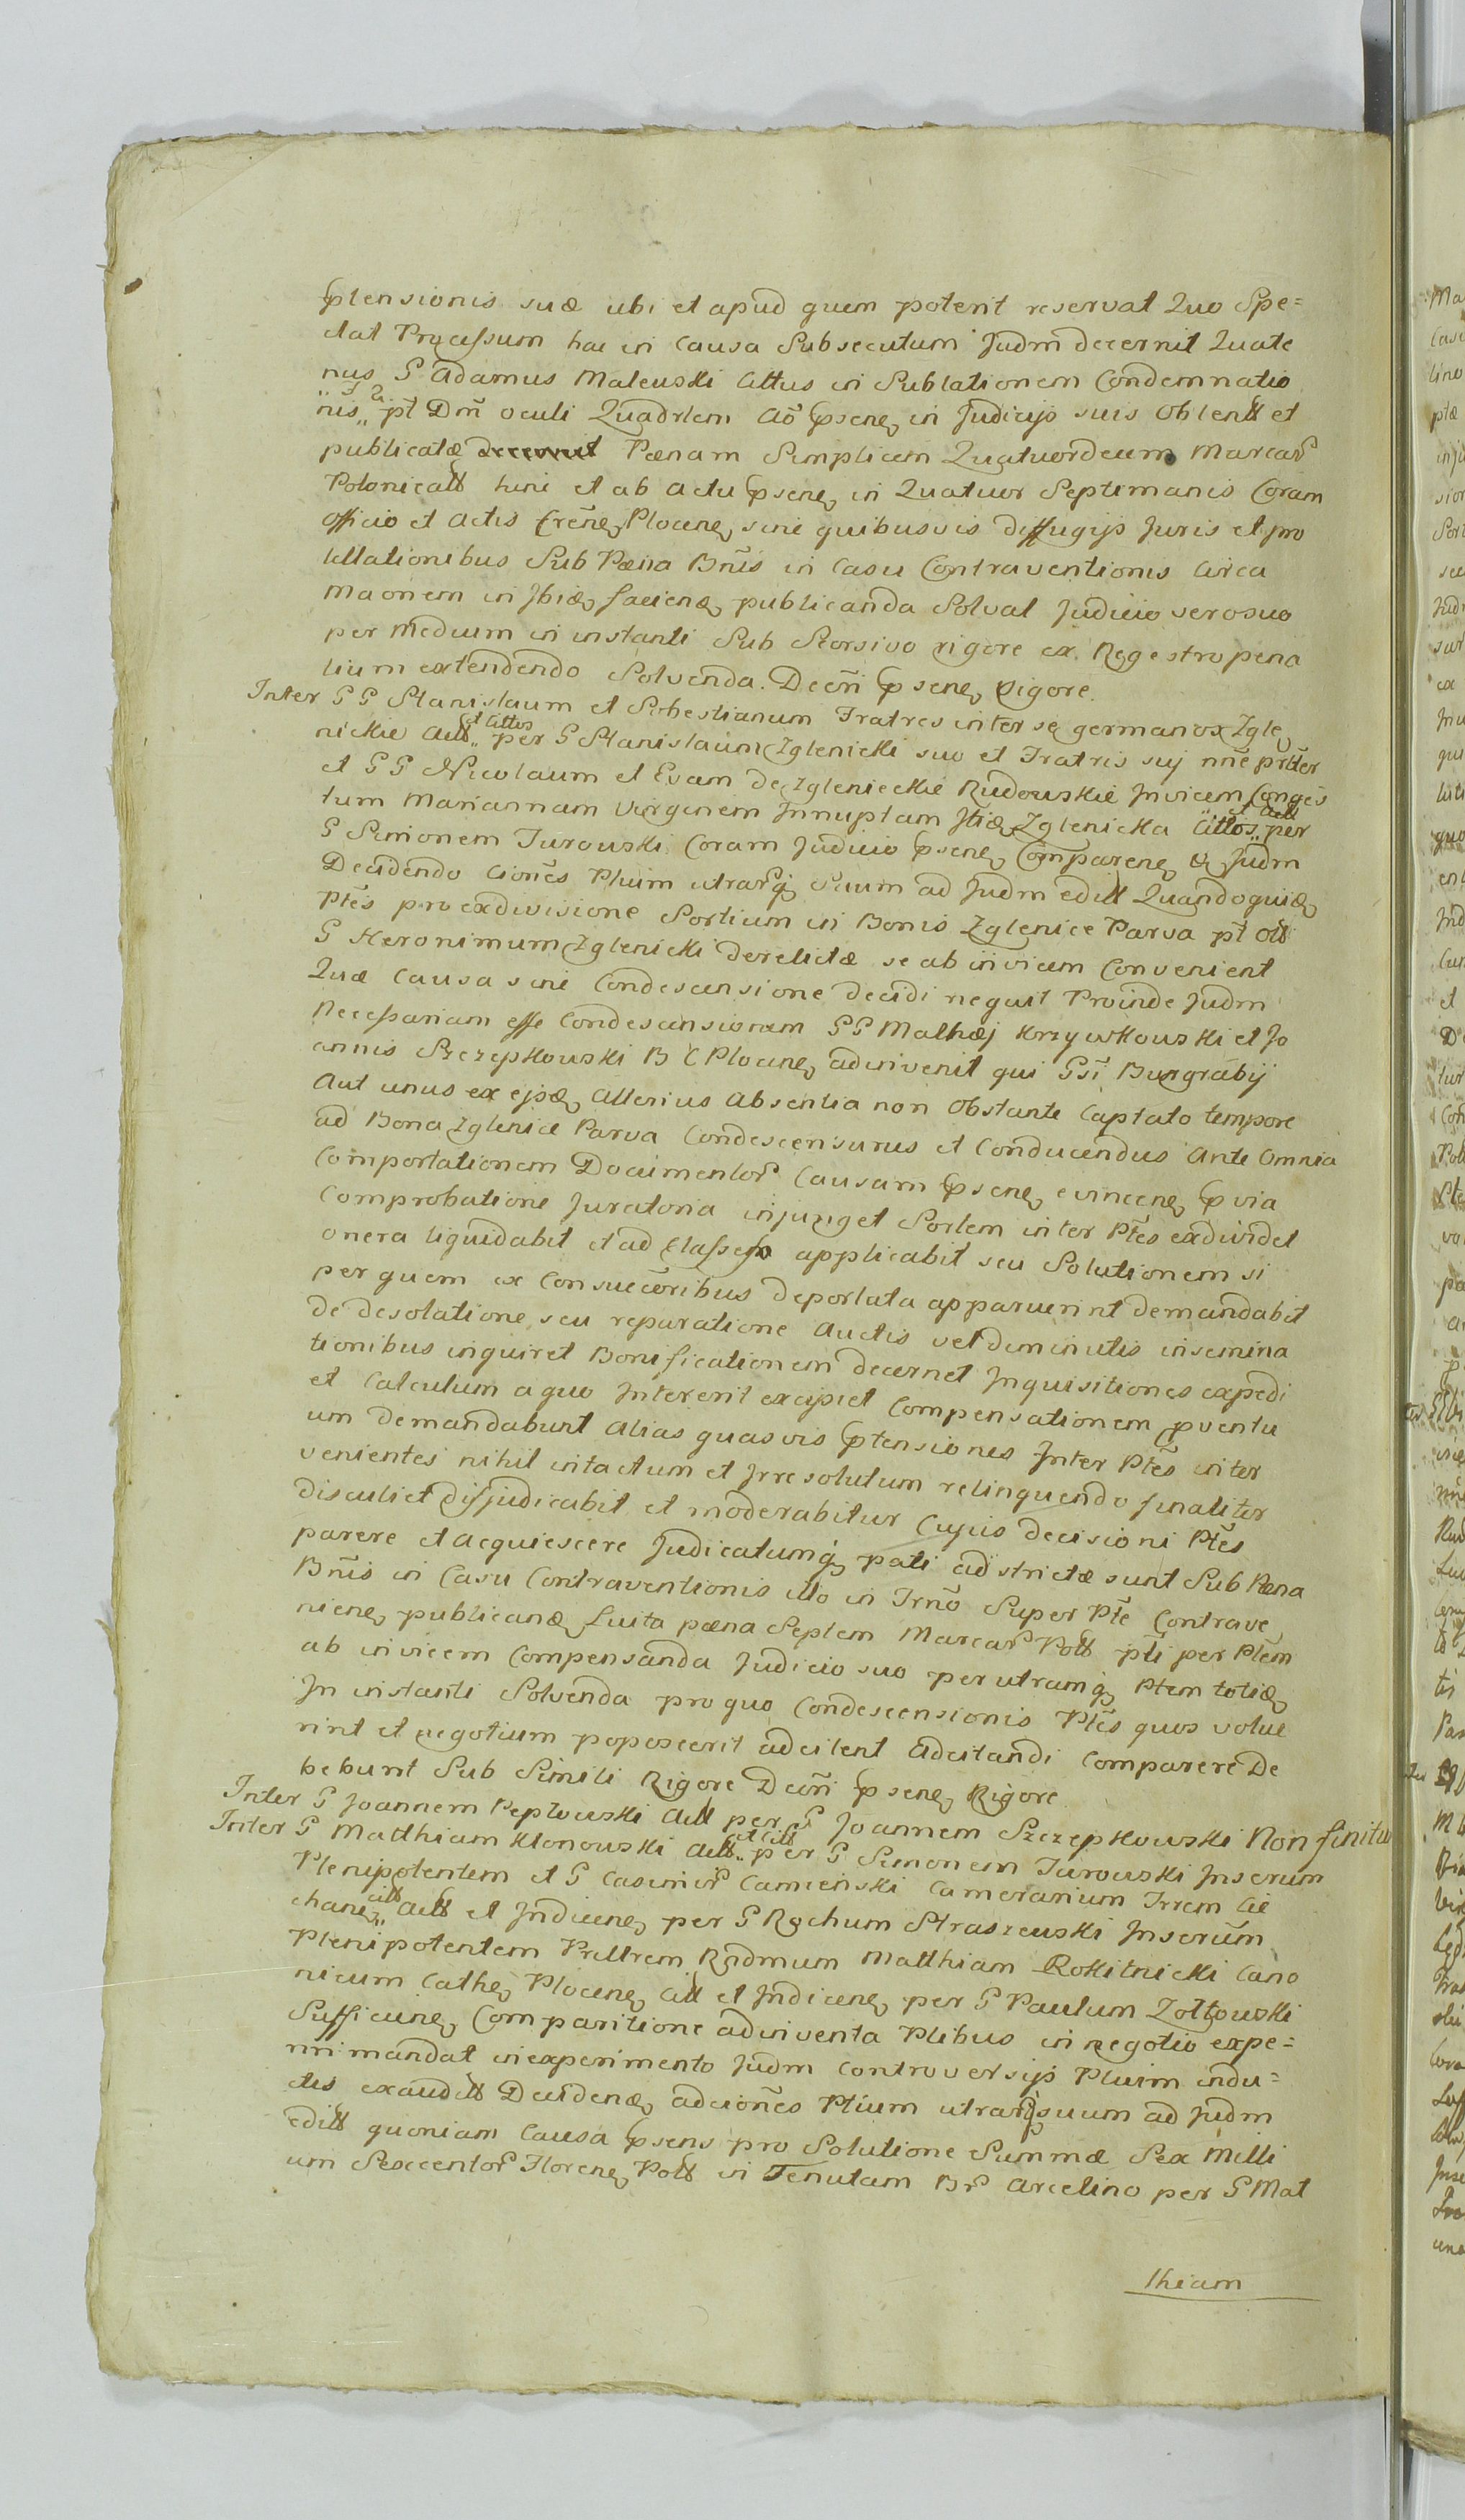 ptensionis suæ ubi et apud quem poterit reservat Quo Spe=
ctat Processum hac in Causa Subsecutum Judm decernit Quate
nus G Adamus Maleuski Cittus in Sublationem Condemnatio
nis pt Dm̃ oculi Quadrlem Aõ psene in Judicijs suis Obtentt et
publicatæ Pœnam Simplicem Quatuordecim Marcar
Polonicatt hinc et ab actu psene in Quatuor Septimanis Coram
Officio et Actis Crẽne Plocene sine quibusvis diffugijs Juris et pro
tellationibus Sub Pœna Bnĩs in Casu Contraventionis Circa
Maonem in Jbidē faciend publicanda Solvat Judicio vero suo
per Medium in instanti Sub Seorsivo rigore ex Regestro pena
lium extendendo Solvenda. Decrĩ psene Vigore.
Inter G G Stanislaum et Sebestianum Fratres inter se germanos Zgle
nickie Actt et Cittos per G Stanislaum Zglenicki suo et Fratris suj nñe prlter
et G G Nicolaum et Evam de Zglenieckie Rudouskie Invicem Conges
tum Mariannam Virginem Innuptam Itid Zglenicka Cittos et Actt per
G Simonem Turouski Coram Judicio psene Comparene & Judm
Decidendo Cioñes Pluim utrarq suum ad Judm editt Quandoquid
Ptẽs pro exdivisione Sortium in Bonis Zglenice Parva pt Ott
G Heronimum Zglenicki derelictæ se ab invicem Convenient
Quæ Causa sine Condescensione decidi nequit Proinde Judm
Necessariam esse Condescensionem G G Mathæj Krzywkouski et Jo
annis Szczepkouski B C Plocene adinvenit qui Gsĩ Burgrabij
Aut unus ex ejsd Alterius Absentia non Obstante Captato tempore
ad Bona Zglenice Parva Condescensurus et Conducendus Ante Omnia
Comportationem Documentor Causam psene evincene pvia
Comprobatione Juratoria injunget Sortem inter Ptẽs exdividet
onera liquidabit et ad Classem applicabit seu Solutionem si
per quem ex Consuccõribus deportata apparuerint demandabit
de desolatione, seu reparatione Auctis vel deminutis insemina
tionibus inquiret Bonificationem decernet Inquisitiones expedi
et Calculum a quo Intererit excipiet Compensationem pventu
um demandabunt Alias quasvis ptensiones Inter Ptẽs inter
venientes nihil intactum et Irresolutum relinquendo finaliter
discutiet disjudicabit et moderabitur Cujus decisioni Ptẽs
parere et acquiescere Judicatumq pati adstrictæ sunt Sub Pœna
Bnĩs in Casu Contraventionis illo in Trnõ Super Ptẽ Contrave
niene publicand Luita pœna Septem Marcar Poltt pti per Ptẽm
ab invicem Compensanda Judicio suo per utramq Ptem totid
In instanti Solvenda pro quo Condescensionis Ptẽs quos volue
rint et negotium poposcerit adcitent Adcitandi Comparere De
bebunt Sub Simili Rigore Decrĩ psene Rigore
Inter G Joannem Peplouski Actt per G Joannem Szczepkouski Non finitur
Inter G Matthiam Klonouski Actt et Citt per G Simonem Turouski Inserum
Plenipotentem et G Casimir Camienski Camerarium Trrem Cie
chane citt Actt et Indicene per G Rochum Straszeuski Inserũm
Plenipotentem Prlltrem Rndmum Matthiam Rokitnicki Cano
nicum Cathe Plocene Citt et Indicene per G Paulum Zołtouski
Sufficiene Comparitione adinventa Ptibus in negotio expe=
riri mandat in experimento Judm Controversijs Pluim indu=
ctis exauditt Decidend adcioñes Ptium utrarq suum ad Judm
editt quoniam Causa psens pro Solutione Summæ Sex Milli
um Sexcentor Florene Poltt in Tenutam Br Arcelino per G Mat
thiam